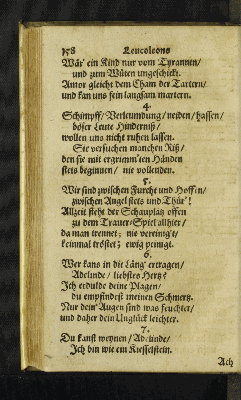 158 Leucoleons
Wär' ein Kind nur vom Tyrannen/
und zum Wüten ungeschickt.
Amor gleicht dem Cham der Tartern/
und kan uns fein langsam martern.
4.
Schimpff/ Verleumdung/ neiden/ hassen/
böser Leute Hinderniß/
wollen uns nicht ruhen lassen.
Sie versuchen manchen Riß/
den sie mit ergrimm'ten Händen
stets beginnen/ nie vollenden.
5.
Wir sind zwischen Furcht und Hoffen/
zwischen Angel stets und Thür'!
Allzeit steht der Schauplatz offen
zu dem Trauer-Spiel allhier/
da man trennet; nie vereinigt/
keinmal tröstet; ewig peinigt.
6.
Wer kans in die Läng' ertragen/
Adelinde/ liebstes Hertz?
Ich erdulde deine Plagen/
du empfindest meinen Schmertz.
Nur dein' Augen sind was feuchter/
und daher dein Unglück leichter.
7.
Du kanst weynen/ Adelinde/
Ich bin wie ein Kieselstein.
Ach